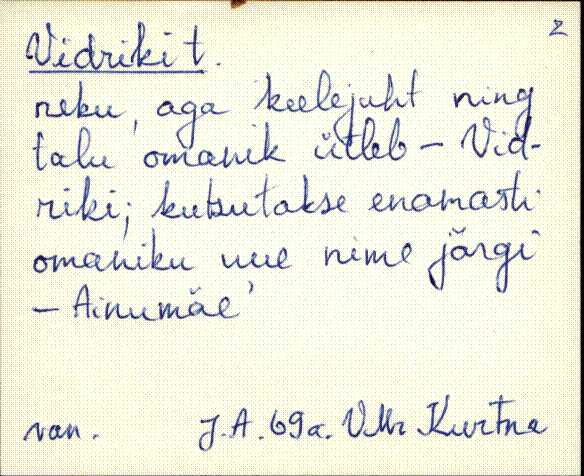 2
Vidriki t.
neku, aga keelejuht ning
talu omanik ütleb – Vid-
riki; kutsutakse enamasti
omaniku uue nime järgi
– Ainumäe'
van. J.A. 69a. VMr Kurtna